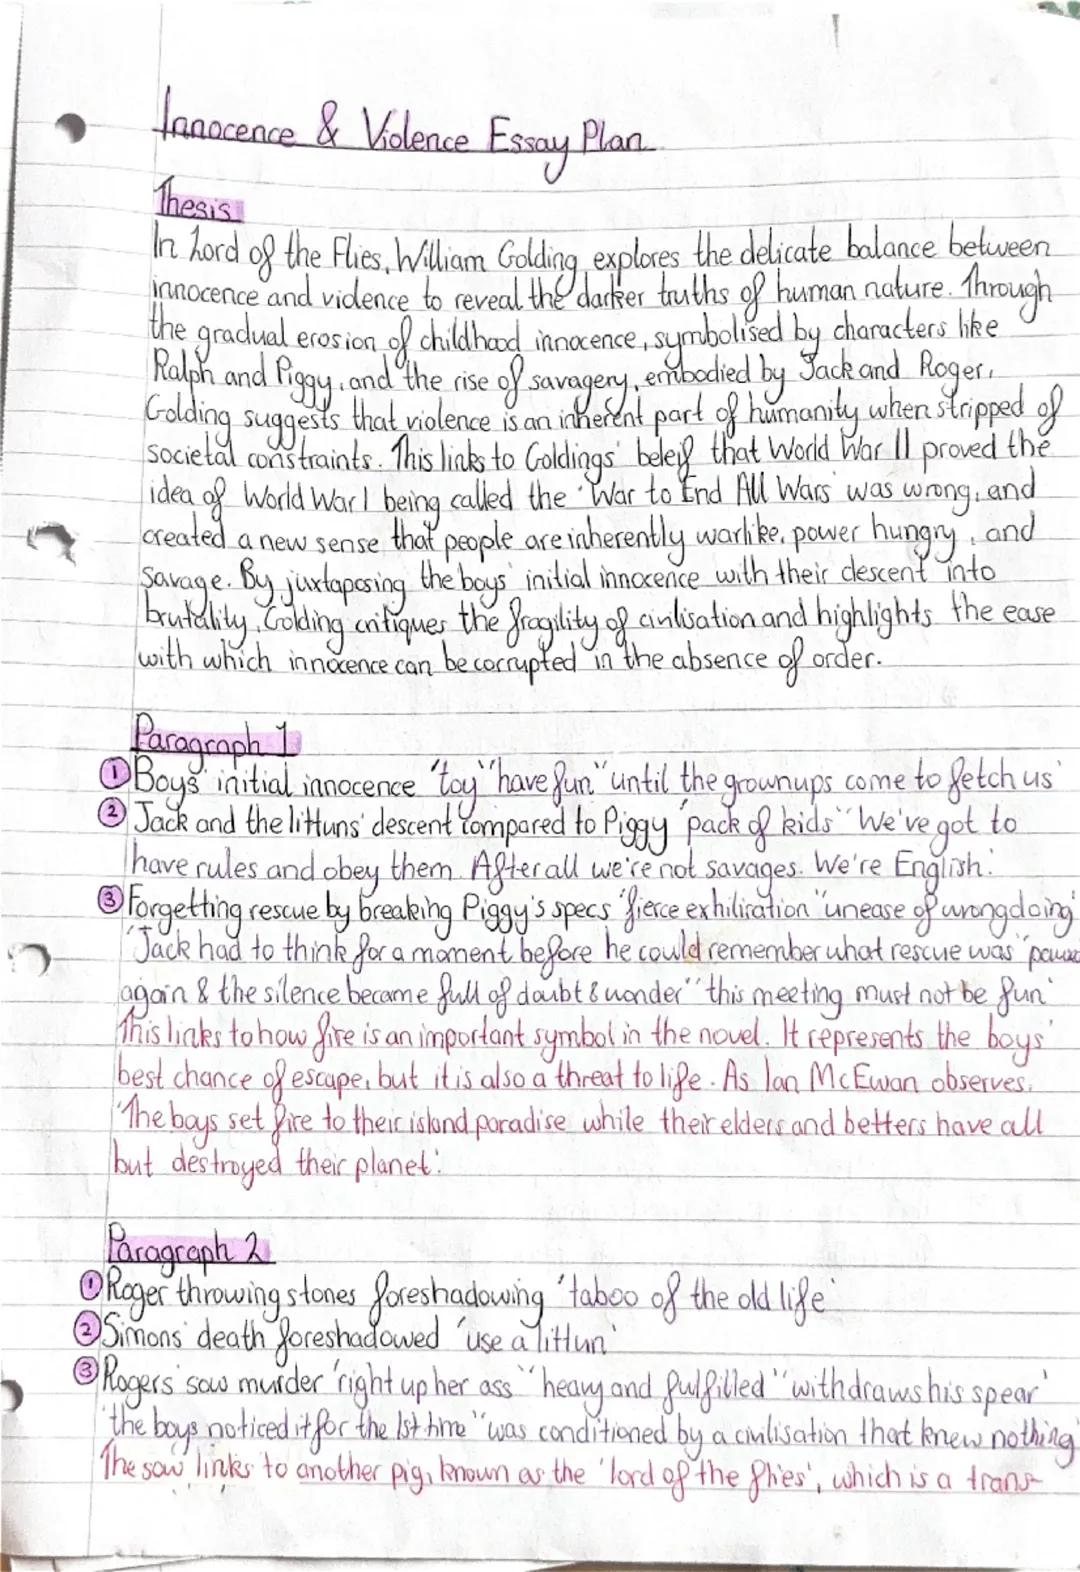 Innocence & Violence Essay Plan
Thesis
In Lord of the Flies, William Golding explores the delicate balance between
innocence and violence to reveal the darker truths of human nature. Through
the gradual erosion of childhood innocence, symbolised by characters like
Ralph and Piggy, and the rise of savagery, embodied by Jack and Roger,
Golding suggests that violence is an inherent part of humanity when stripped of
societal constraints. This links to Goldings' beleif that World War II proved the
idea of World War I being called the 'War to End All Wars' was wrong, and
created a new sense that people are inherently warlike, power hungry, and
savage. By juxtaposing the boys' initial innocence with their descent into
brutality, Golding critiques the fragility of civilisation and highlights the ease
with which innocence can be corrupted in the absence of order.
Paragraph 1
① Boys' initial innocence 'toy' 'have fun' 'until the grownups come to fetch us'
② Jack and the littuns' descent compared to Piggy 'pack of kids' 'We've got to
have rules and obey them. After all we're not savages. We're English.'
③ Forgetting rescue by breaking Piggy's specs 'fierce exhiliration' 'unease of wrongdoing'
'Jack had to think for a moment before he could remember what rescue was'
again & the silence became full of doubt & wonder' 'this meeting must not be fun'
This links to how fire is an important symbol in the novel. It represents the boys'
best chance of escape, but it is also a threat to life. As Ian McEwan observes,
'The boys set fire to their island paradise while their elders and betters have all
but destroyed their planet'.
Paragraph 2
① Roger throwing stones foreshadowing 'taboo of the old life'
② Simons' death foreshadowed 'use a littun'
③ Rogers' sow murder 'right up her ass' 'heavy and fulfilled' 'withdraws his spear'
'the boys noticed it for the 1st time' 'was conditioned by a civilisation that knew nothing'
The sow links to another pig, known as the 'lord of the flies', which is a trans-